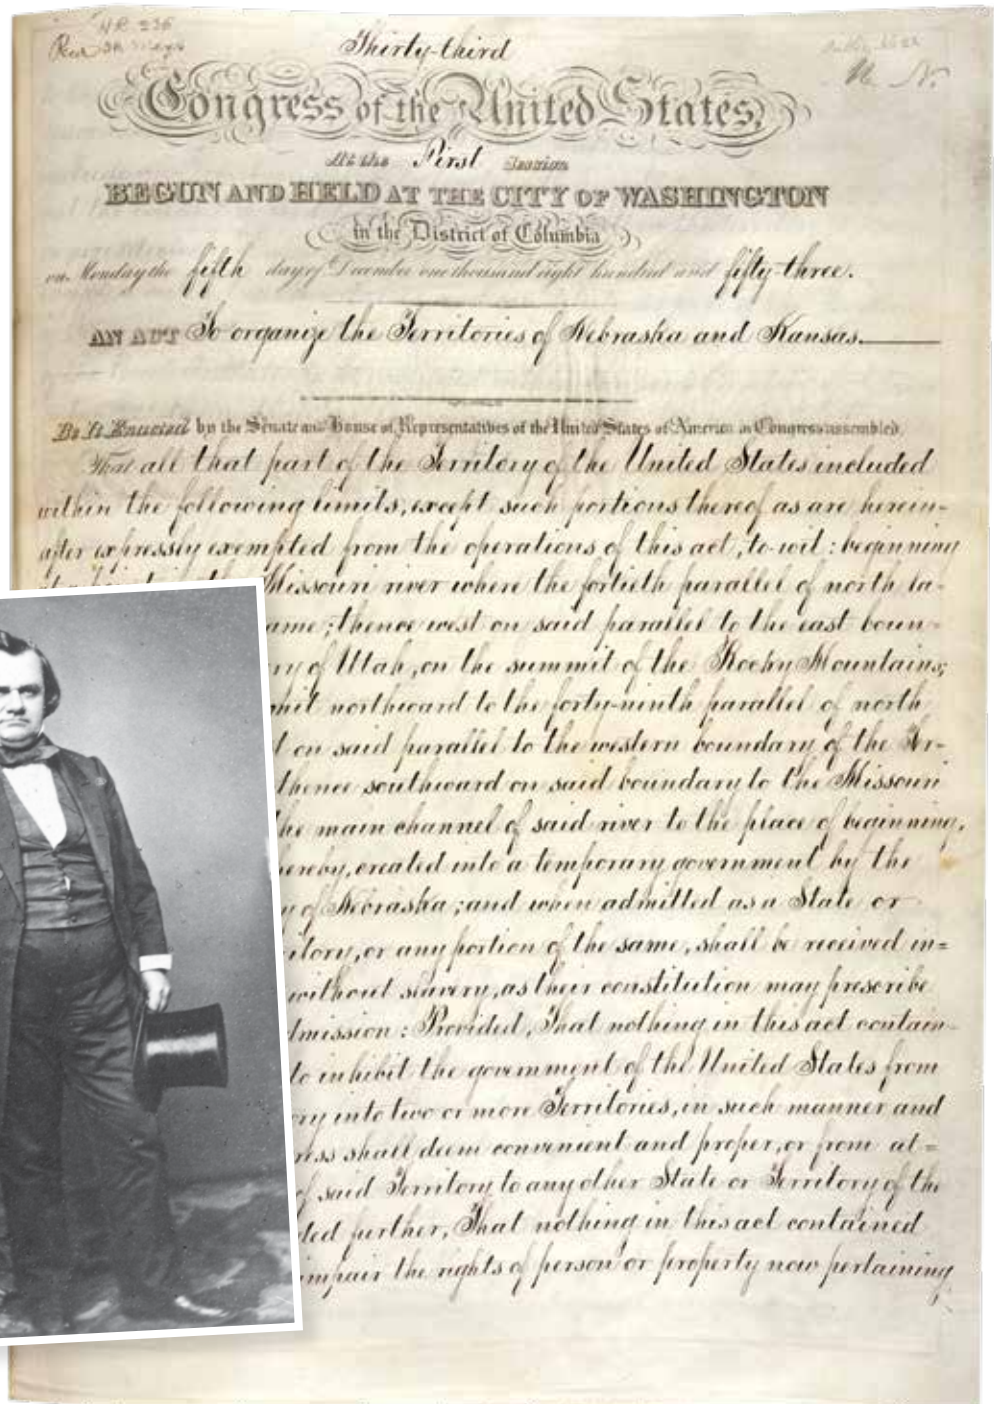 HR. 236
Thirty-third
Congress of the United States,
At the First Session
BEGUN AND HELD AT THE CITY OF WASHINGTON
in the District of Columbia
on Monday the fifth day of December one thousand eight hundred and fifty-three.
AN ACT To organize the Territories of Nebraska and Kansas.
Be It Enacted by the Senate and House of Representatives of the United States of America in Congress assembled,
That all that part of the Territory of the United States included
within the following limits, except such portions thereof as are herein-
after expressly exempted from the operations of this act, to-wit: beginning
Missouri river where the fortieth parallel of north la-
ame; thence west on said parallel to the east boun-
ry of Utah, on the summit of the Rocky Mountains;
mit northward to the forty-ninth parallel of north
t on said parallel to the western boundary of the Ter-
thence southward on said boundary to the Missouri
he main channel of said river to the place of beginning,
hereby, created into a temporary government by the
y of Nebraska; and when admitted as a State or
itory, or any portion of the same, shall be received in-
without slavery, as their constitution may prescribe
dmission: Provided, That nothing in this act contain-
to inhibit the government of the United States from
ory into two or more Territories, in such manner and
ress shall deem convenient and proper, or from at-
of said Territory to any other State or Territory of the
ded further, That nothing in this act contained
impair the rights of person or property now pertaining